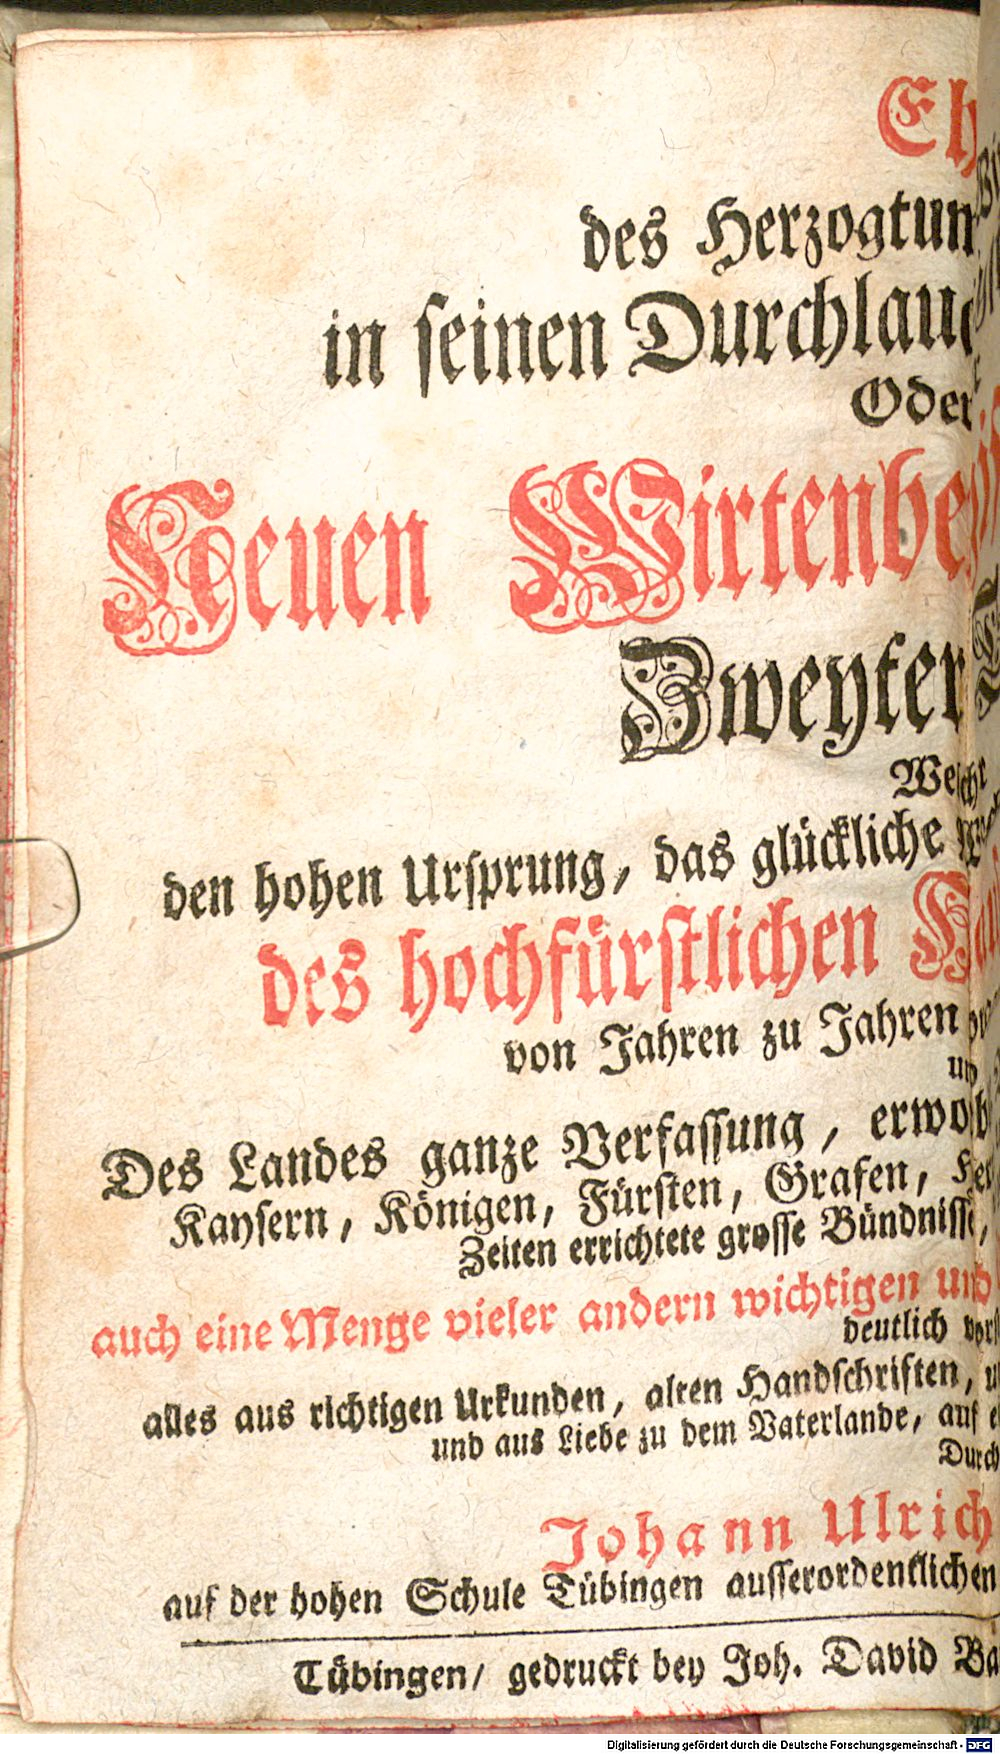 Eh
des Herzogtum
in seinen Durchlauc
Oder
Neuen Wirtenbe
Zweyter
Welche
den hohen Ursprung, das glückliche
des hochfürstlichen
von Jahren zu Jahren
un
Des Landes ganze Verfassung, erwo
Kaysern, Königen, Fürsten, Grafen,
Zeiten errichtete grosse Bündnisse,
auch eine Menge vieler andern wichtigen und
deutlich vors
alles aus richtigen Urkunden, alten Handschriften, u
und aus Liebe zu dem Vaterlande, auf e
Durch
Johann Ulrich
auf der hohen Schule Tübingen ausserordentlichen
Tübingen/ gedruckt bey Joh. David Ba
Digitalisierung gefördert durch die Deutsche Forschungsgemeinschaft - DFG